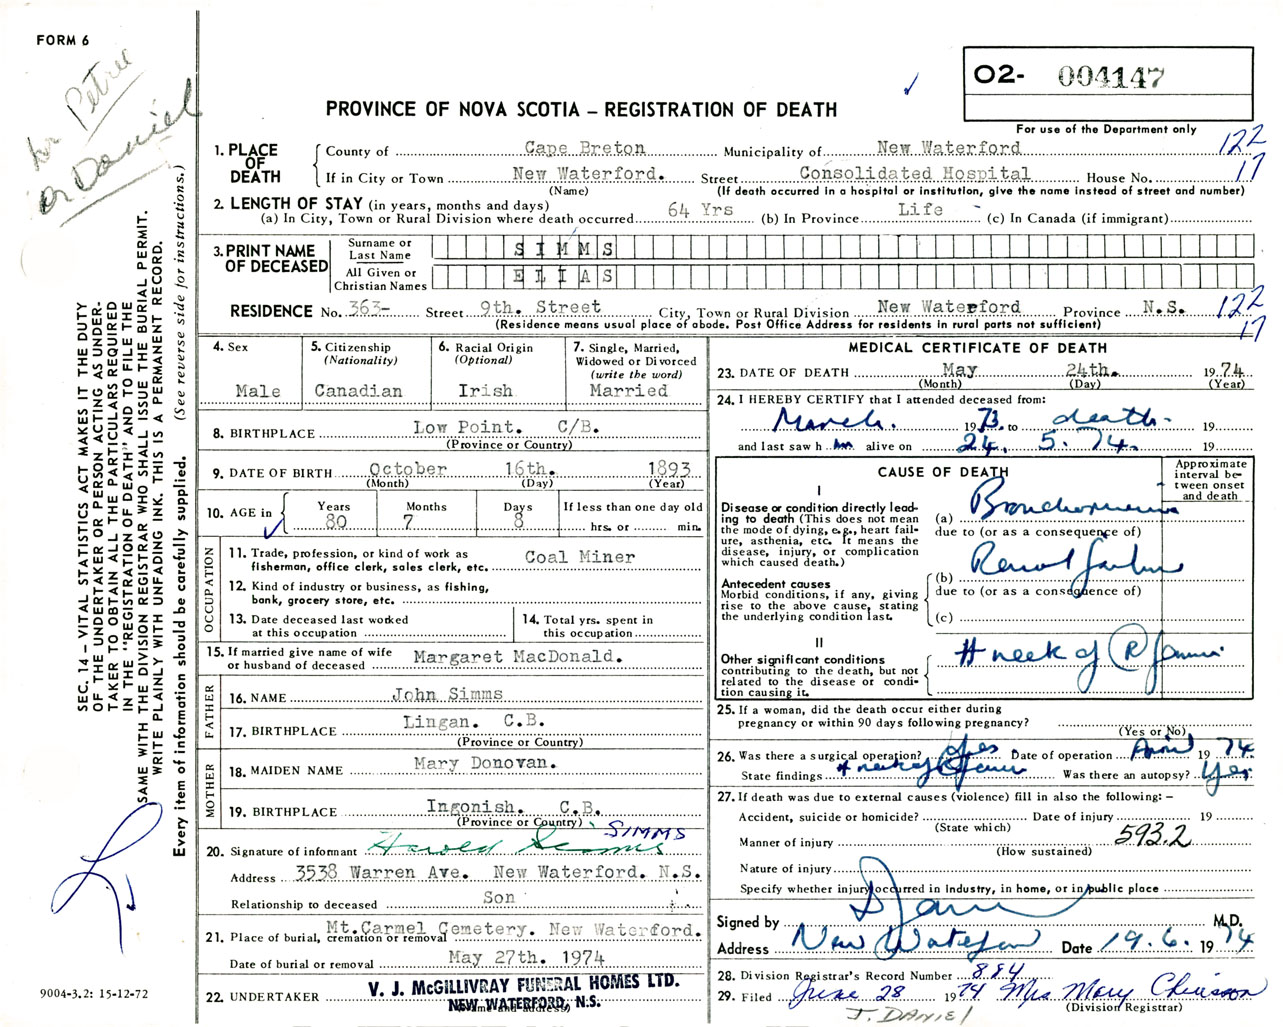 FORM 6
Dr Petrie
or Daniel
O2- 004147
PROVINCE OF NOVA SCOTIA – REGISTRATION OF DEATH
For use of the Department only
1. PLACE OF DEATH
County of Cape Breton Municipality of New Waterford 122
If in City or Town New Waterford. Street Consolidated Hospital House No. 17
(Name) (If death occurred in a hospital or institution, give the name instead of street and number)
2. LENGTH OF STAY (in years, months and days)
(a) In City, Town or Rural Division where death occurred 64 Yrs (b) In Province Life (c) In Canada (if immigrant)
3. PRINT NAME OF DECEASED
Surname or Last Name SIMMS
All Given or Christian Names ELIAS
RESIDENCE No. 363- Street 9th. Street City, Town or Rural Division New Waterford Province N.S. 122
(Residence means usual place of abode. Post Office Address for residents in rural parts not sufficient) 17
4. Sex Male
5. Citizenship (Nationality) Canadian
6. Racial Origin (Optional) Irish
7. Single, Married, Widowed or Divorced (write the word) Married
8. BIRTHPLACE Low Point. C/B.
(Province or Country)
9. DATE OF BIRTH October 16th. 1893
(Month) (Day) (Year)
10. AGE in Years 80 Months 7 Days 8 If less than one day old hrs. or min.
OCCUPATION
11. Trade, profession, or kind of work as fisherman, office clerk, sales clerk, etc. Coal Miner
12. Kind of industry or business, as fishing, bank, grocery store, etc.
13. Date deceased last worked at this occupation
14. Total yrs. spent in this occupation
15. If married give name of wife or husband of deceased Margaret MacDonald.
FATHER
16. NAME John Simms
17. BIRTHPLACE Lingan. C.B.
(Province or Country)
MOTHER
18. MAIDEN NAME Mary Donovan.
19. BIRTHPLACE Ingonish. C.B.
(Province or Country)
SIMMS
20. Signature of informant Harold Simms
Address 3538 Warren Ave. New Waterford. N.S.
Relationship to deceased Son
21. Place of burial, cremation or removal Mt. Carmel Cemetery. New Waterford.
Date of burial or removal May 27th. 1974
22. UNDERTAKER V. J. McGILLIVRAY FUNERAL HOMES LTD.
NEW WATERFORD, N.S.
(Name and address)
MEDICAL CERTIFICATE OF DEATH
23. DATE OF DEATH May 24th. 1974
(Month) (Day) (Year)
24. I HEREBY CERTIFY that I attended deceased from:
March. 1973. to death. 19
and last saw h im alive on 24. 5. 74. 19
CAUSE OF DEATH
Approximate interval between onset and death
I
Disease or condition directly leading to death (This does not mean the mode of dying, e.g., heart failure, asthenia, etc. It means the disease, injury, or complication which caused death.)
(a) Bronchopneumonia
due to (or as a consequence of)
Antecedent causes
Morbid conditions, if any, giving rise to the above cause, stating the underlying condition last.
(b) Renal failure
due to (or as a consequence of)
(c)
II
Other significant conditions contributing to the death, but not related to the disease or condition causing it.
# neck of (R) femur
25. If a woman, did the death occur either during pregnancy or within 90 days following pregnancy?
(Yes or No)
26. Was there a surgical operation? yes Date of operation April 1974
State findings # neck of R femur Was there an autopsy? Yes
27. If death was due to external causes (violence) fill in also the following: –
Accident, suicide or homicide? Date of injury 19
(State which)
Manner of injury 593.2
(How sustained)
Nature of injury
Specify whether injury occurred in industry, in home, or in public place
Signed by M.D.
Address New Waterford Date 19. 6. 1974
28. Division Registrar's Record Number 884
29. Filed June 28 1974 Mrs Mary
(Division Registrar)
J. DANIEL
SEC. 14 – VITAL STATISTICS ACT MAKES IT THE DUTY
OF THE UNDERTAKER OR PERSON ACTING AS UNDER-
TAKER TO OBTAIN ALL THE PARTICULARS REQUIRED
IN THE "REGISTRATION OF DEATH" AND TO FILE THE
SAME WITH THE DIVISION REGISTRAR WHO SHALL ISSUE THE BURIAL PERMIT.
WRITE PLAINLY WITH UNFADING INK. THIS IS A PERMANENT RECORD.
Every item of information should be carefully supplied. (See reverse side for instructions.)
9004-3.2: 15-12-72